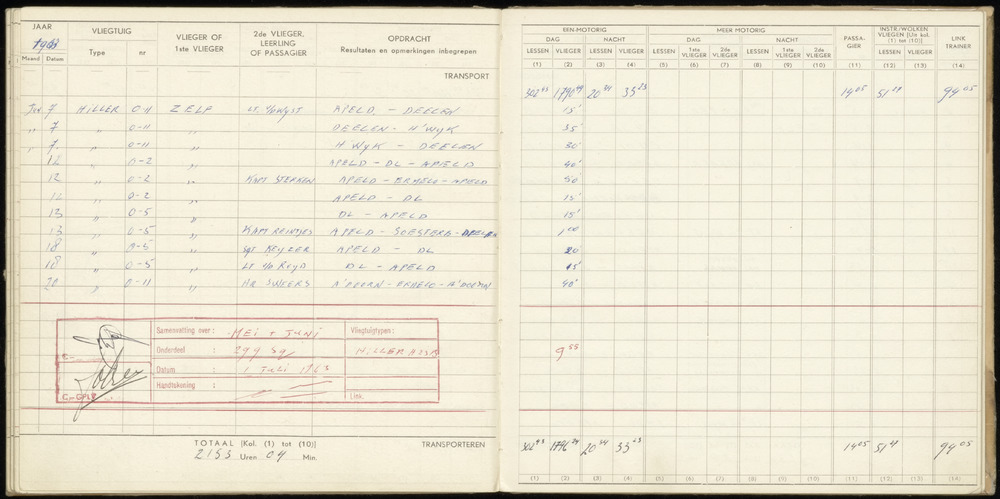 JAAR VLIEGTUIG VLIEGER OF 1ste VLIEGER 2de VLIEGER, LEERLING OF PASSAGIER OPDRACHT Resultaten en opmerkingen inbegrepen
1963
Maand Datum Type nr
TRANSPORT
7 HILLER 0-11 ZELF APELD - DEELEN
" 7 " 0-11 " DEELEN - H'WYK
" 7 " 0-11 " H'WYK - DEELEN
12 " 0-2 " APELD - DL - APELD
12 " 0-2 " KAPT STERKEN APELD - ERMELO - APELD
12 " 0-2 " APELD - DL
13 " 0-5 " DL - APELD
13 " 0-5 " KAPT REINTJES APELD - SOESTERB -
18 " 0-5 " SGT KEYZER APELD - DL
18 " 0-5 " LT DL - APELD
20 " 0-11 " HR SWEERS
Samenvatting over: MEI + JUNI Vliegtuigtypes:
Onderdeel : 299 Sq HILLER
Datum : 1 Juli 1963
Handtekening :
Link.
TOTAAL [Kol. (1) tot (10)] TRANSPORTEREN
2153 Uren 04 Min.
EEN-MOTORIG MEER MOTORIG PASSA-GIER INSTR./WOLKEN VLIEGEN [Un kol. (1) tot (10)] LINK TRAINER
DAG NACHT DAG NACHT
LESSEN VLIEGER LESSEN VLIEGER LESSEN 1ste VLIEGER 2de VLIEGER LESSEN 1ste VLIEGER 2de VLIEGER LESSEN VLIEGER
(1) (2) (3) (4) (5) (6) (7) (8) (9) (10) (11) (12) (13) (14)
302 43 20 34 33 23 14 05 94 05
15'
35'
30'
40'
50
15'
15'
1 00
20
15'
40'
9 55
302 43 20 34 33 23 14 05 94 05
(1) (2) (3) (4) (5) (6) (7) (8) (9) (10) (11) (12) (13) (14)